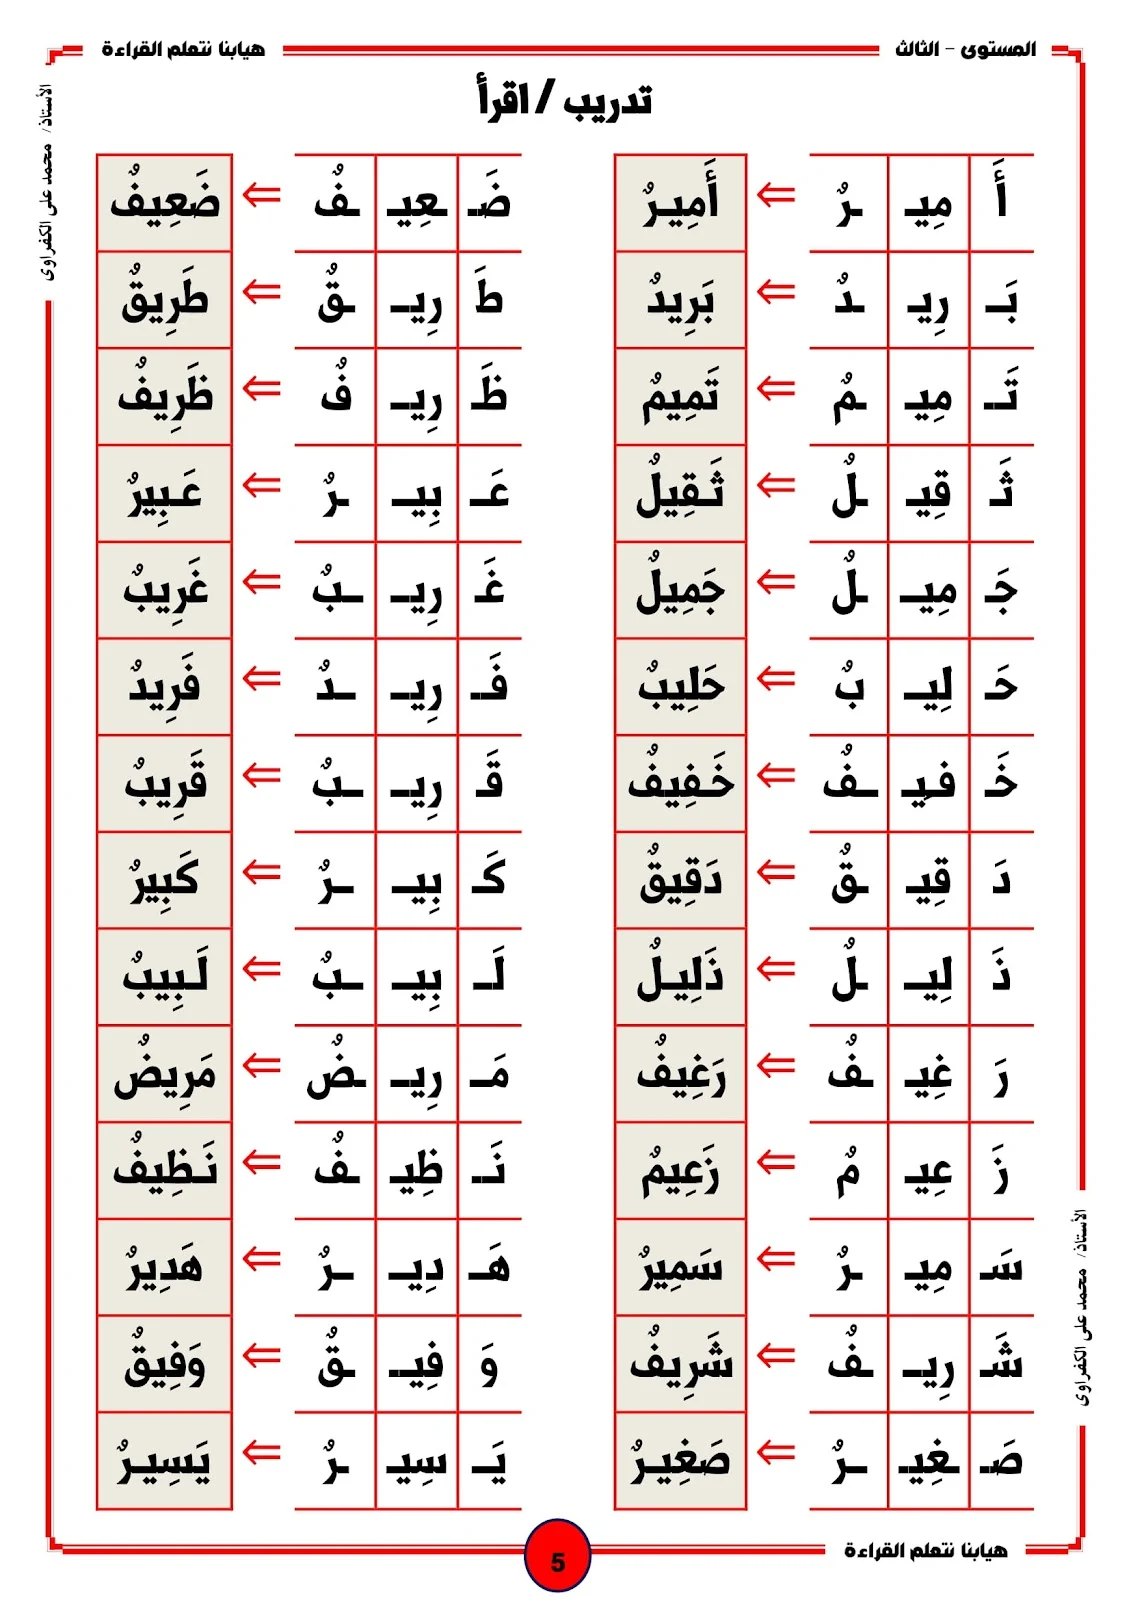 المستوى - الثالث هيابنا نتعلم القراءة
تدريب / اقرأ
أَ مِيـ ـرٌ ⇐ أَمِيـرٌ ضَـ ـعِيـ ـفٌ ⇐ ضَعِيفٌ
بَـ رِيـ ـدٌ ⇐ بَرِيدٌ طَ رِيـ ـقٌ ⇐ طَرِيقٌ
تَـ مِيـ ـمٌ ⇐ تَمِيمٌ ظَـ رِيـ فٌ ⇐ ظَرِيفٌ
ثَـ قِيـ ـلٌ ⇐ ثَـقِيلٌ عَـ بِيـ ـرٌ ⇐ عَـبِيرٌ
جَـ مِيـ ـلٌ ⇐ جَمِيلٌ غَـ رِيـ ـبٌ ⇐ غَرِيبٌ
حَـ لِيـ بٌ ⇐ حَلِيبٌ فَـ رِيـ ـدٌ ⇐ فَرِيدٌ
خَـ فِيـ ـفٌ ⇐ خَـفِيفٌ قَـ رِيـ ـبٌ ⇐ قَرِيبٌ
دَ قِيـ ـقٌ ⇐ دَقِيقٌ كَـ بِيـ ـرٌ ⇐ كَبِيرٌ
ذَ لِيـ ـلٌ ⇐ ذَلِيـلٌ لَـ بِيـ ـبٌ ⇐ لَـبِيبٌ
رَ غِيـ ـفٌ ⇐ رَغِيفٌ مَـ رِيـ ـضٌ ⇐ مَرِيضٌ
زَ عِيـ مٌ ⇐ زَعِيمٌ نَـ ظِيـ ـفٌ ⇐ نَـظِيفٌ
سَـ مِيـ ـرٌ ⇐ سَمِيرٌ هَـ دِيـ ـرٌ ⇐ هَدِيرٌ
شَـ رِيـ ـفٌ ⇐ شَرِيفٌ وَ فِيـ ـقٌ ⇐ وَفِيقٌ
صَـ ـغِيـ ـرٌ ⇐ صَغِيـرٌ يَـ سِيـ ـرٌ ⇐ يَسِيـرٌ
الأستاذ/ محمد على الكفراوى
الأستاذ/ محمد على الكفراوى
هيابنا نتعلم القراءة
5